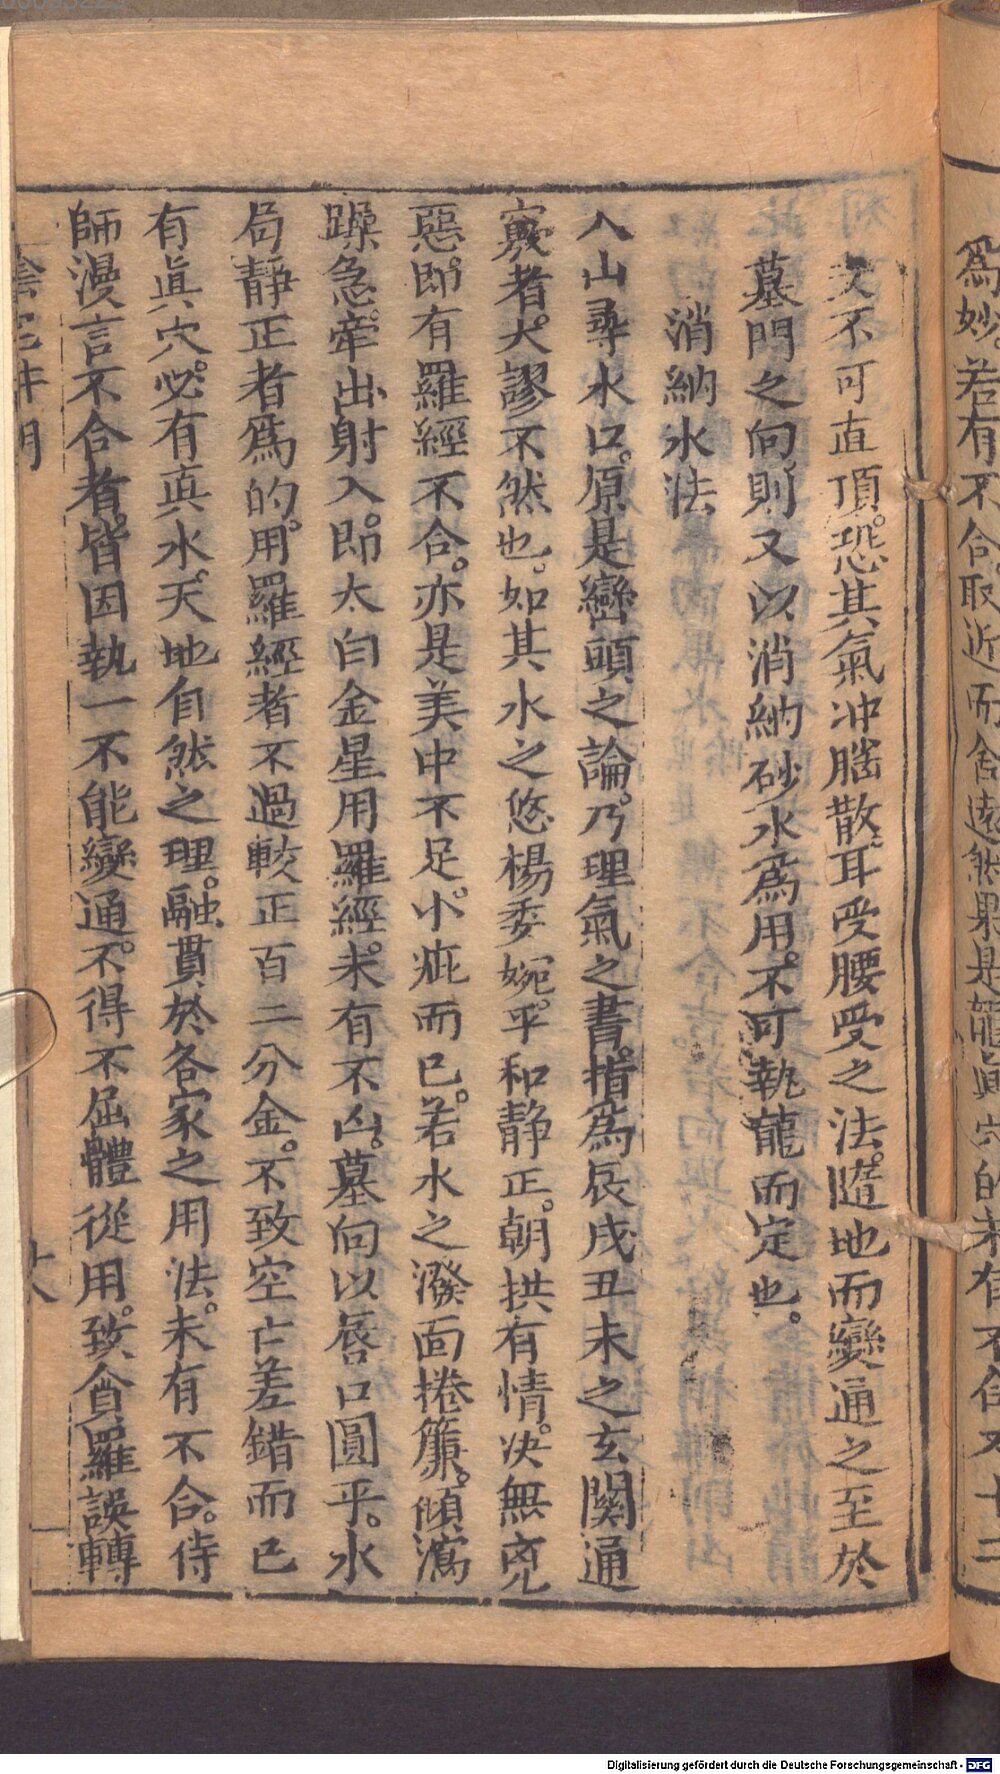 爲妙。若有不合。取近而舍遠。然果是龍眞穴的。未有不合
又不可直頂。恐其氣冲腦散。耳受腰受之法。隨地而變通之。至於
墓門之向。則又以消納砂水爲用。不可執龍而定也。
消納水法
入山尋水口。原是巒頭之論。乃理氣之書。指爲辰戌丑未之玄關通
竅者。大謬不然也。如其水之悠楊委婉。平和靜正。朝拱有情。决無兇
惡。即有羅經不合。亦是美中不足。小疵而已。若水之潑面捲簾。傾瀉
躁急。牽出射入。即太白金星用羅經。未有不凶。墓向以唇口圓平。水
局靜正者爲的。用羅經者不過較正百二分金。不致空亡差錯而已
有眞穴。必有真水。天地自然之理。融貫於各家之用法。未有不合。侍
師漫言不合者。皆因執一不能變通。不得不屈體從用。致貪羅誤轉
十八
Digitalisierung gefördert durch die Deutsche Forschungsgemeinschaft - DFG